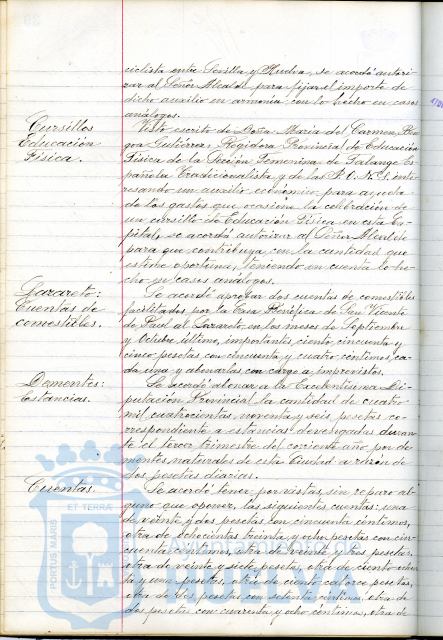 ciclista entre Sevilla y Huelva, se acordó autori-
zar al Señor Alcalde para fijar el importe de
dicho auxilio en armonía con lo hecho en casos
análogos.
Cursillos
Educación
Física.
Visto escrito de Doña María del Carmen
Gutiérrez, Regidora Provincial de Educación
Física de la Sección Femenina de Falange Es-
pañola Tradicionalista y de las J.O.N.S. inte-
resando un auxilio económico para ayuda
de los gastos que ocasione la celebración de
un cursillo de Educación Física en esta Ca-
pital, se acordó autorizar al Señor Alcalde
para que contribuya con la cantidad que
estime oportuna, teniendo en cuenta lo he-
cho en casos análogos.
Lazareto:
Cuentas de
comestibles.
Se acordó aprobar dos cuentas de comestibles
facilitados por la Casa Benéfica de San Vicente
de Paul al Lazareto en los meses de Septiembre
y Octubre último, importantes, ciento cincuenta y
cinco pesetas con cincuenta y cuatro céntimos, ca-
da una y abonarlas con cargo a imprevistos.
Dementes:
Estancias.
Se acordó abonar a la Excelentísima Di-
putación Provincial la cantidad de cuatro
mil cuatrocientas noventa y seis pesetas co-
rrespondiente a estancias devengadas duran-
te el tercer trimestre del corriente año por de-
mentes naturales de esta Ciudad a razón de
dos pesetas diarias.
Cuentas.
Se acordó tener por vistas, sin reparo al-
guno que oponer, las siguientes cuentas: una
de veinte y dos pesetas con cincuenta céntimos,
otra de ochocientas treinta y ocho pesetas con cin-
cuenta céntimos, otra de veinte y tres pesetas,
otra de veinte y siete pesetas, otra de ciento
y una pesetas, otra de ciento catorce pesetas,
otra de dos pesetas con setenta céntimos, otra de
dos pesetas con cuarenta y ocho céntimos, otra de
PORTUS MARIS
ET TERRÆ